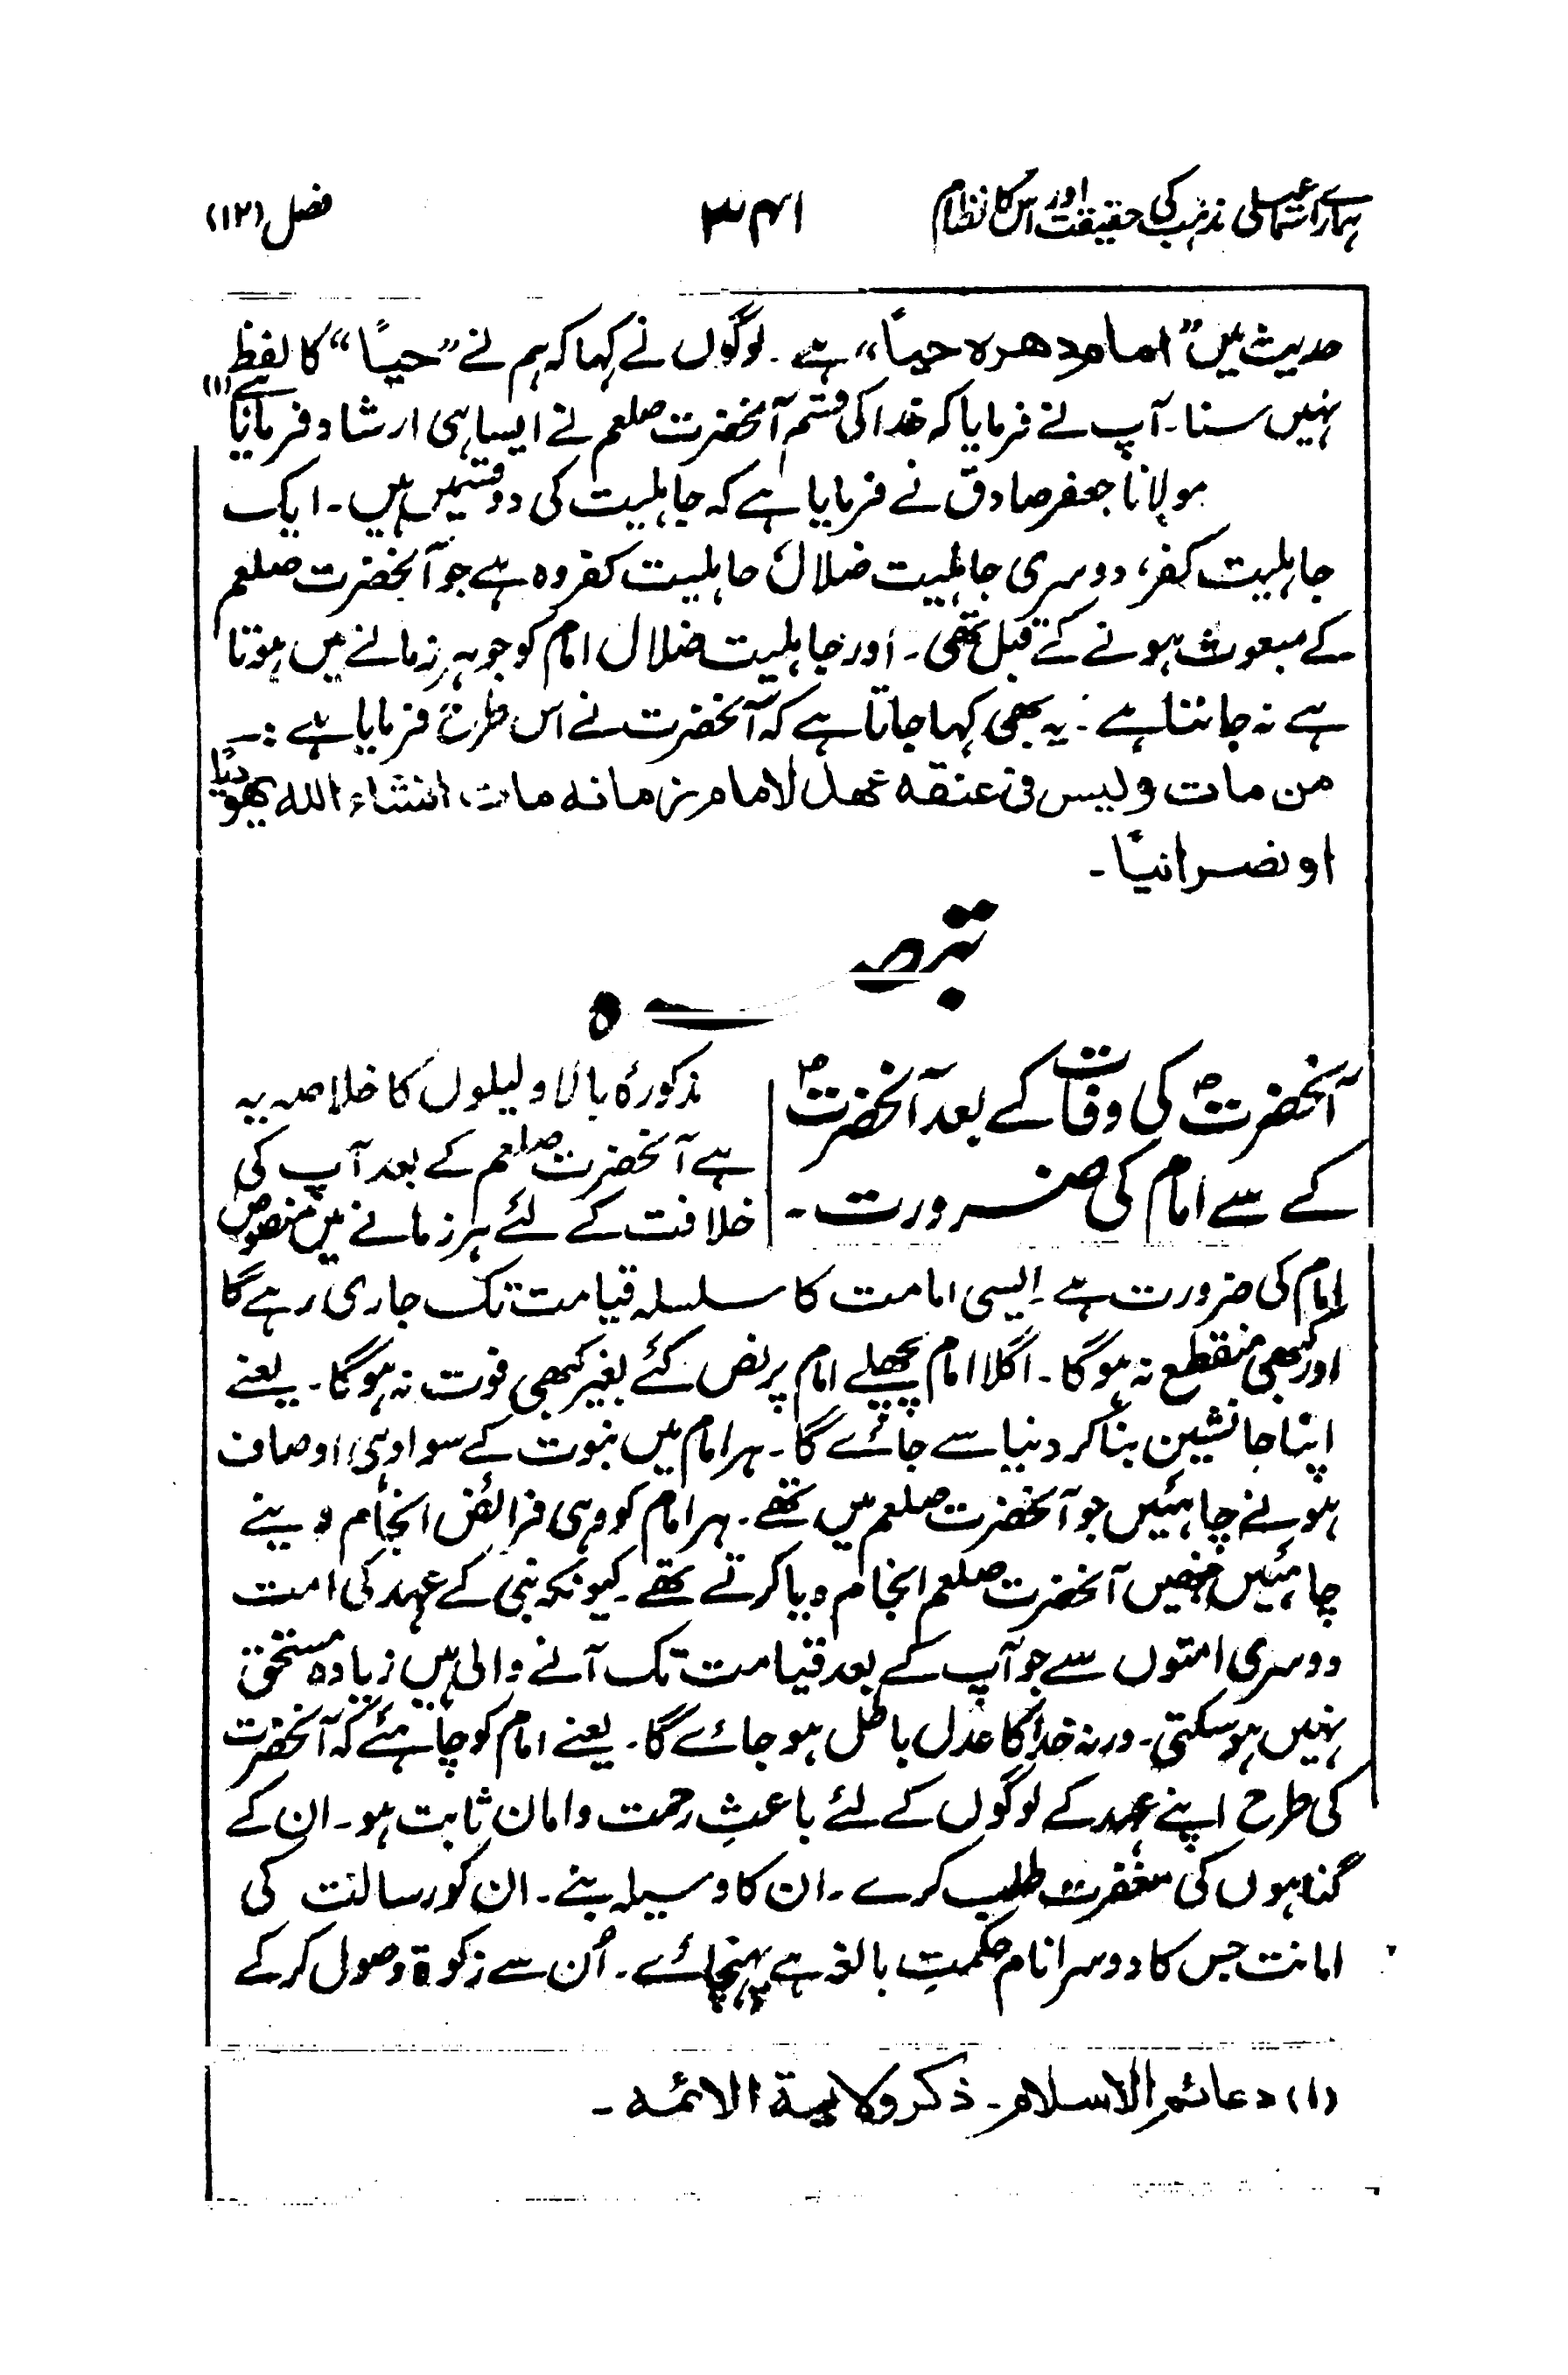 ہمارے اسماعیلی مذہب کی حقیقت اور اس کا نظام
۳۴۱
فصل (۱۲)
حدیث میں ”امام دھرہ حیاً“ ہے ۔ لوگوں نے کہا کہ ہم نے ”حیاً“ کا لفظ
نہیں سنا ۔ آپ نے فرمایا کہ خدا کی قسم آنحضرت صلعم نے ایسا ہی ارشاد فرمایا ہے (۱)
مولانا جعفر صادق نے فرمایا ہے کہ جاہلیت کی دو قسمیں ہیں ۔ ایک
جاہلیت کفر، دوسری جاہلیت ضلال جاہلیت کفر وہ ہے جو آنحضرت صلعم
کے مبعوث ہونے کے قبل تھی ۔ اور جاہلیت ضلال امام کو جو ہر زمانے میں ہوتا
ہے نہ جاننا ہے ۔ یہ بھی کہا جاتا ہے کہ آنحضرت نے اس طرح فرمایا ہے :۔
من مات ولیس فی عنقہ عھد لامام زمانہ مات انشاء اللہ یھودیًا
او نصرانیًا ۔
تبصرہ
آنحضرتؐ کی وفات کے بعد آنحضرتؐ
کے سے امام کی ضرورت ۔
مذکورۂ بالا دلیلوں کا خلاصہ یہ
ہے آنحضرت صلعم کے بعد آپ کی
خلافت کے لئے ہر زمانے میں منصوص
امام کی ضرورت ہے ایسی امامت کا سلسلہ قیامت تک جاری رہے گا
اور کبھی منقطع نہ ہوگا ۔ اگلا امام پچھلے امام پر نص کئے بغیر کبھی فوت نہ ہوگا ۔ یعنے
اپنا جانشین بنا کر دنیا سے جائے گا ۔ ہر امام میں نبوت کے سوا وہی اوصاف
ہونے چاہئیں جو آنحضرت صلعم میں تھے ۔ ہر امام کو وہی فرائض انجام دینے
چاہئیں جنھیں آنحضرت صلعم انجام دیا کرتے تھے ۔ کیونکہ نبی کے عہد کی امت
دوسری امتوں سے جو آپ کے بعد قیامت تک آنے والی ہیں زیادہ مستحق
نہیں ہوسکتی ۔ ورنہ خدا کا عدل باطل ہو جائے گا ۔ یعنے امام کو چاہئے کہ آنحضرت
کی طرح اپنے عہد کے لوگوں کے لئے باعثِ رحمت و امان ثابت ہو ۔ ان کے
گناہوں کی مغفرت طلب کرے ۔ ان کا وسیلہ بنے ۔ ان کو رسالت کی
امانت جس کا دوسرا نام حکمتِ بالغہ ہے پہنچائے ۔ اُن سے زکوٰۃ وصول کر کے
(۱) دعائم الاسلام ۔ ذکر ولایۃ الائمہ ۔